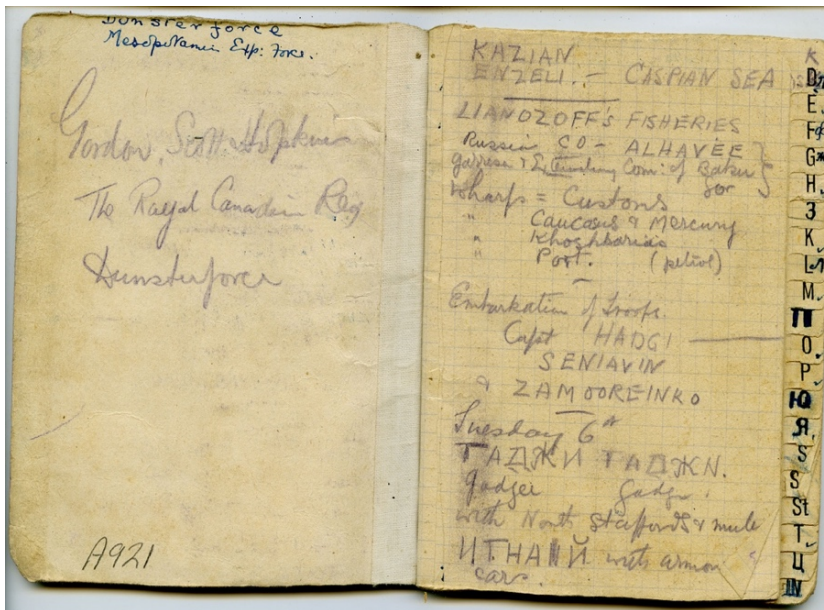 Dunsterforce
Mesopotamia Exp: Force.
Gordon, Scott Hopkins
The Royal Canadian Reg
Dunsterforce
A921
KAZIAN
ENZELI. — CASPIAN SEA
LIANOZOFF'S FISHERIES
Russian CO - ALHAVÉE
Com: of Baku
for
Wharfs = Customs
" Caucasus & Mercury
" Khoshtaria's
" Port. (petrol)
Embarkation of Troops.
Capt HADGI
SENIAVIN
& ZAMOOREINKO
Tuesday 6th
ГАДЖИ ГАДЖN.
Gadgei Gadgi.
with North Staffords & mule
ИТНАІЙ with armour
cars.
K
D
E
F
G
H
З
K
L
M
П
O
P
Ю
Я
S
S
St
T
Ц
IN